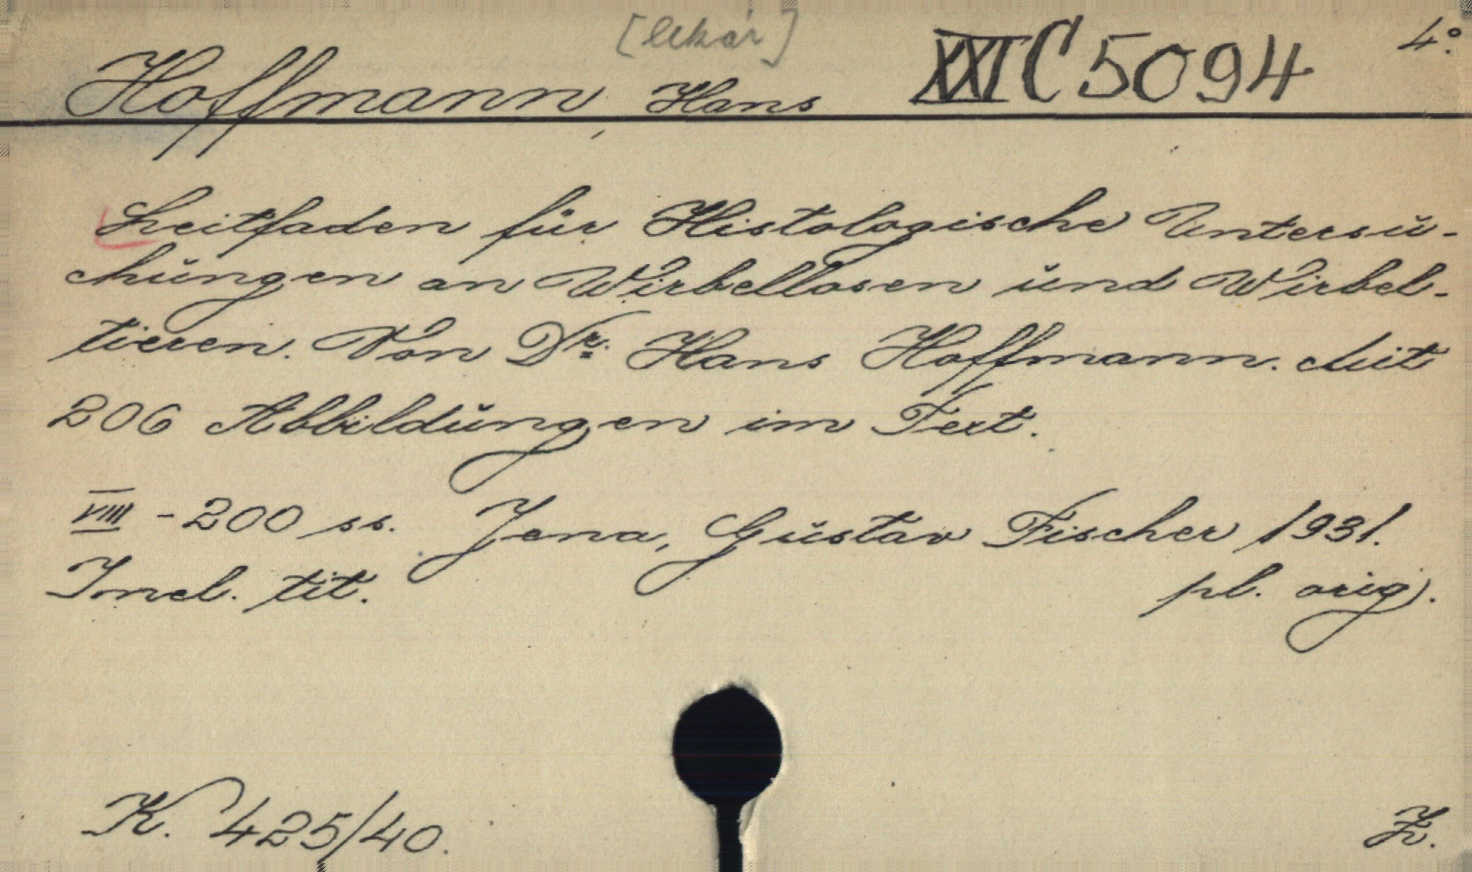 [lekár]
Hoffmann, Hans XXI C 5094 4°.
Leitfaden für Histologische Untersu-
chungen an Wirbellosen und Wirbel-
tieren. Von Dr. Hans Hoffmann. Mit
206 Abbildungen im Text.
VIII - 200 ss. Jena, Gustav Fischer 1931.
Incl. tit. pl. orig.
K. 425/40. Z.